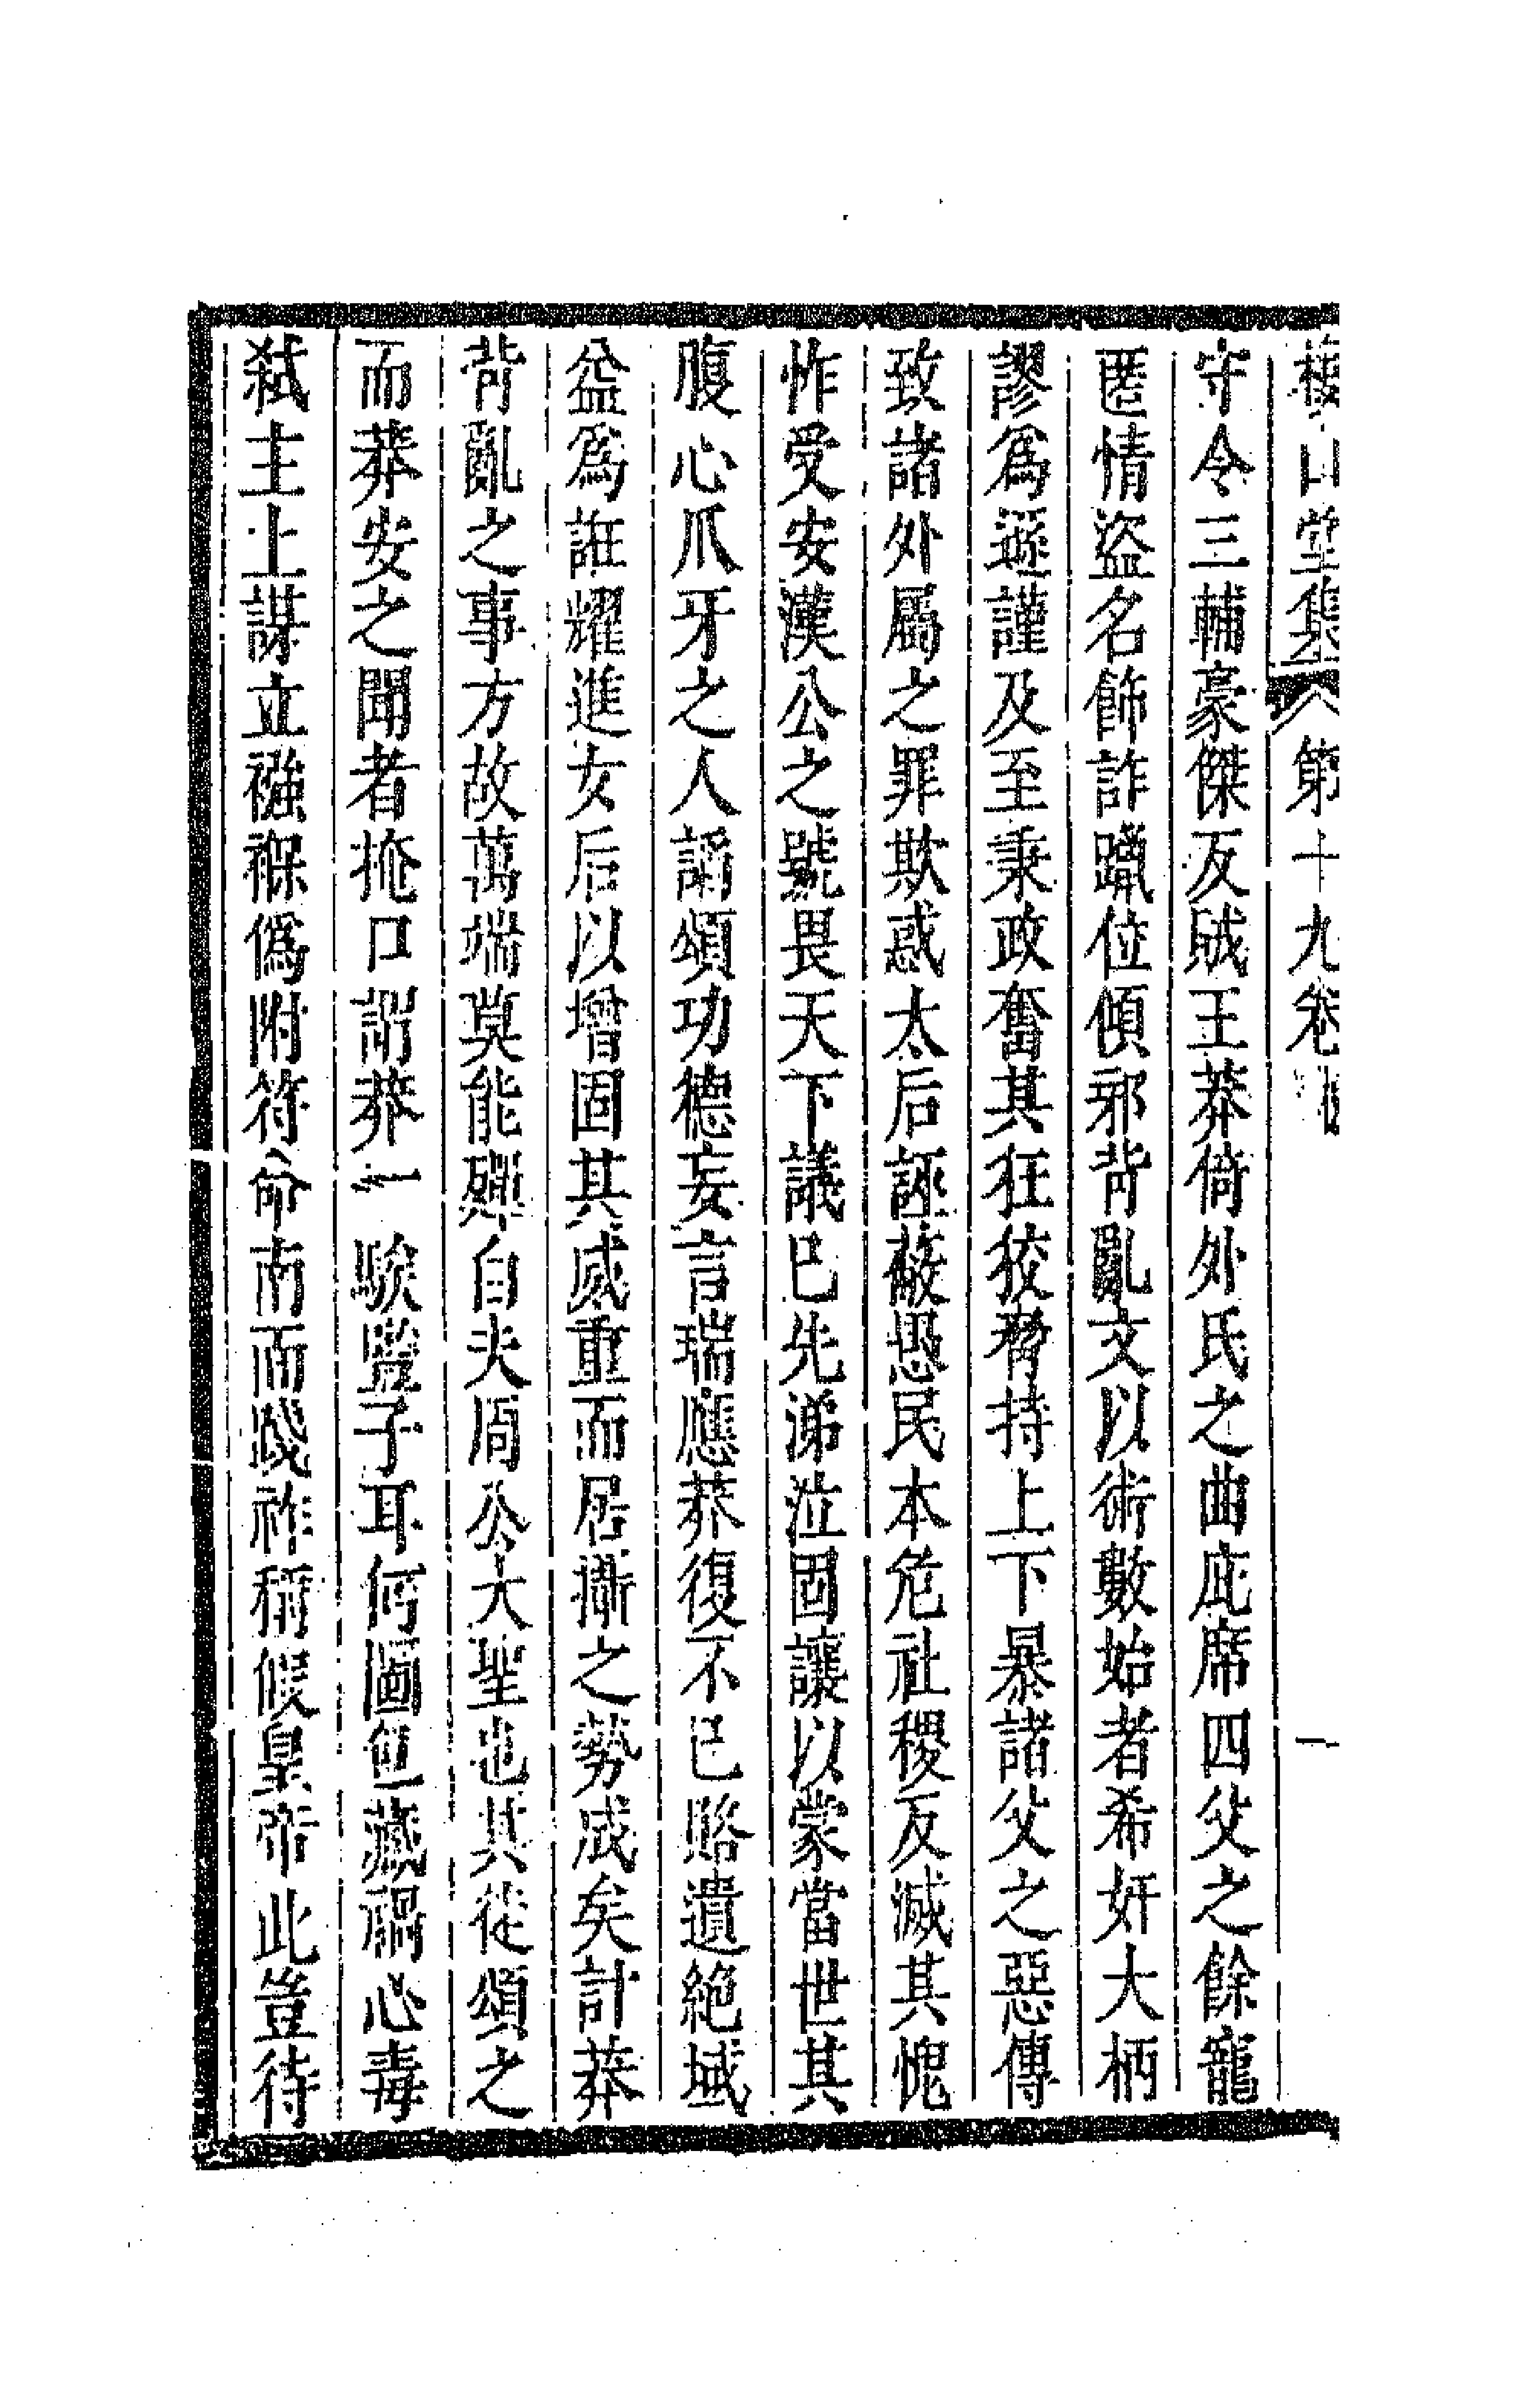 樓山堂集第十九卷 一
守令三輔豪傑反賊王莽倚外氏之曲庇席四父之餘寵
匿情盜名飾詐躐位傾邪背亂文以術數始者希奸大柄
謬爲遜謹及至秉政奮其狂狡脅持上下暴諸父之惡傳
致諸外屬之罪欺惑太后誣蔽愚民本危社稷反滅其愧
怍受安漢公之號畏天下議已先涕泣固讓以蒙當世其
腹心爪牙之人謟頌功德妄言瑞應莽復不已賂遺絕域
益爲誑耀進女后以增固其威重而居攝之勢成矣計莽
背亂之事方故萬端莫能殫自夫周公大聖也其徒頌之
而莽安之聞者掩口謂莽一騃豎子耳何圖包藏禍心毒
弒主上謀立襁褓僞附符命南面踐祚稱假皇帝此豈待